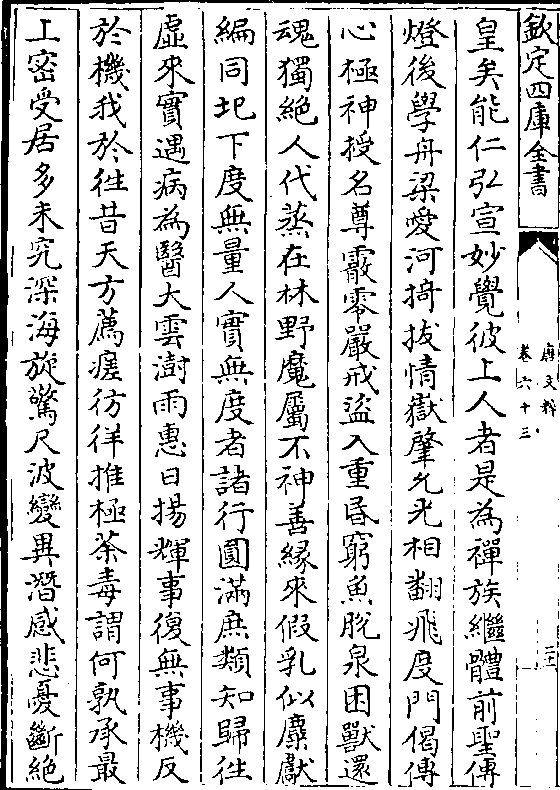 欽定四庫全書
唐文粹
卷六十三
皇矣能仁弘宣妙覺彼上人者是為禪族繼體前聖傳
燈後學舟梁愛河掎拔情嶽肇允光相翻飛度門偈傳
心極神授名尊霰零嚴戒盜入重昏窮魚脫泉困獸還
魂獨絶人代蒸在林野魔屬不神善縁來假乳似麋獻
編同圯下度無量人實無度者諸行圓滿庶類知歸往
虛來實遇病為醫大雲澍雨惠日揚輝事復無事機反
於機我於徃昔天方薦瘥彷徉推極荼毒謂何孰承最
上密受居多未究深海旋驚尺波變異潛感悲憂斷絶